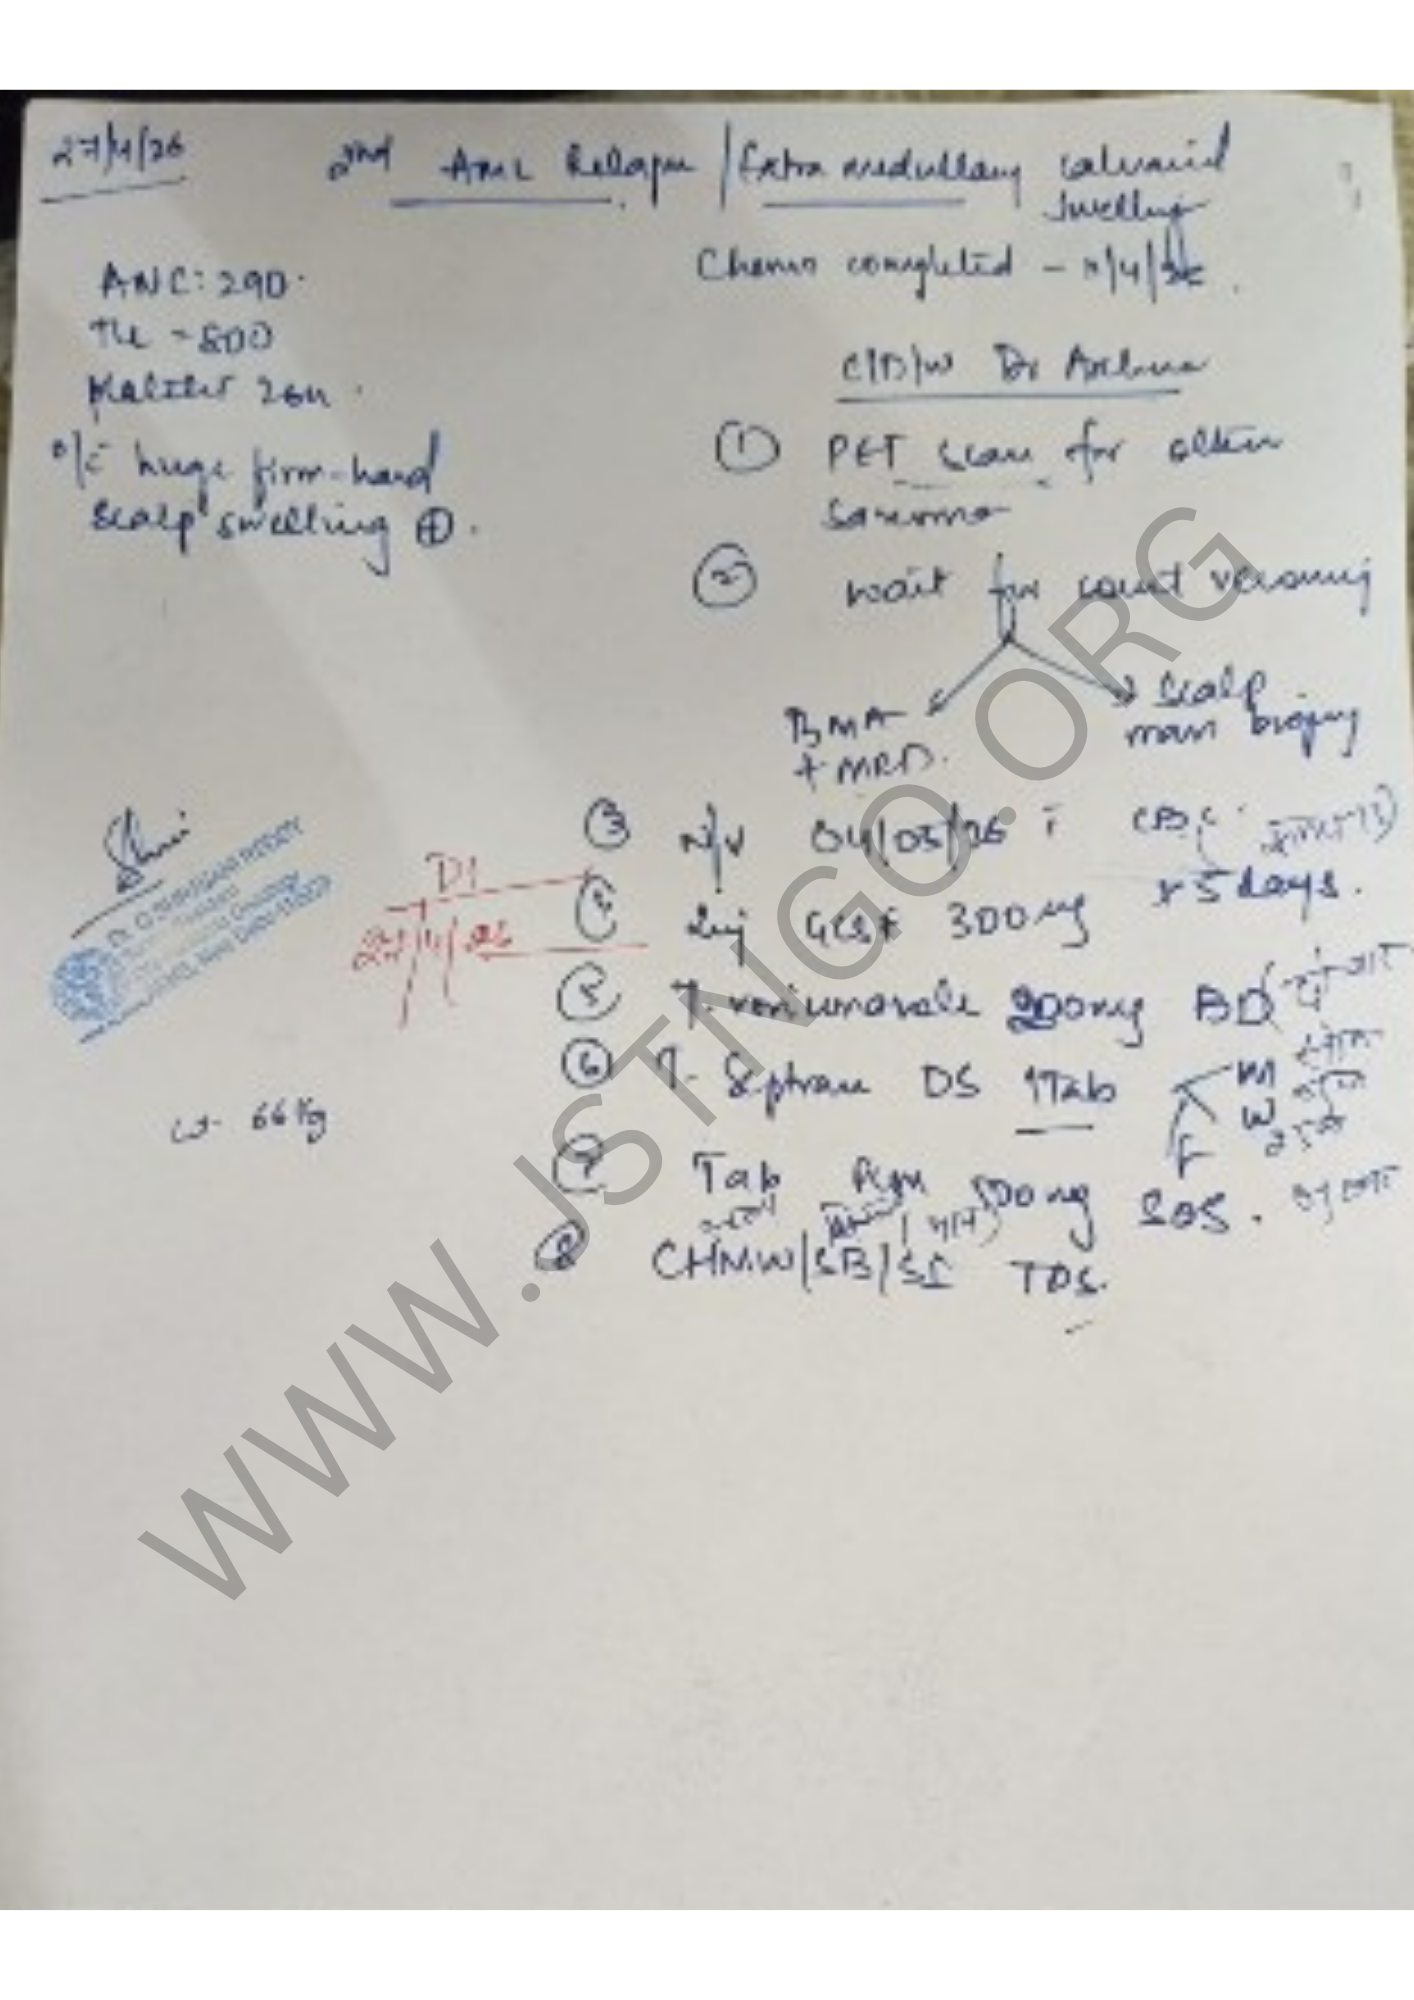 27/4/26
2nd AML Relapse / Extra medullary calvarial
swelling
Chemo completed -
ANC: 290.
TLC - 800
Platelet 26k.
o/e huge firm-hard
scalp swelling +.
C/D/W Dr Archana
① PET scan for other
Sarcoma
② wait for count recovery
BMA
+ MRD.
scalp
mass biopsy
③ N/V 04/05/26 c̄ CBC.
④ Inj GCSF 300 mcg x 5 days.
D1
27/4/26
⑤ T. voriconazole 200mg BD
⑥ T. Septran DS 1Tab
M
W
F
wt- 66 kg
⑦ Tab Pcm 500mg SOS.
⑧ CHMW/SB/SS TDS.
WWW.JSTNGO.ORG